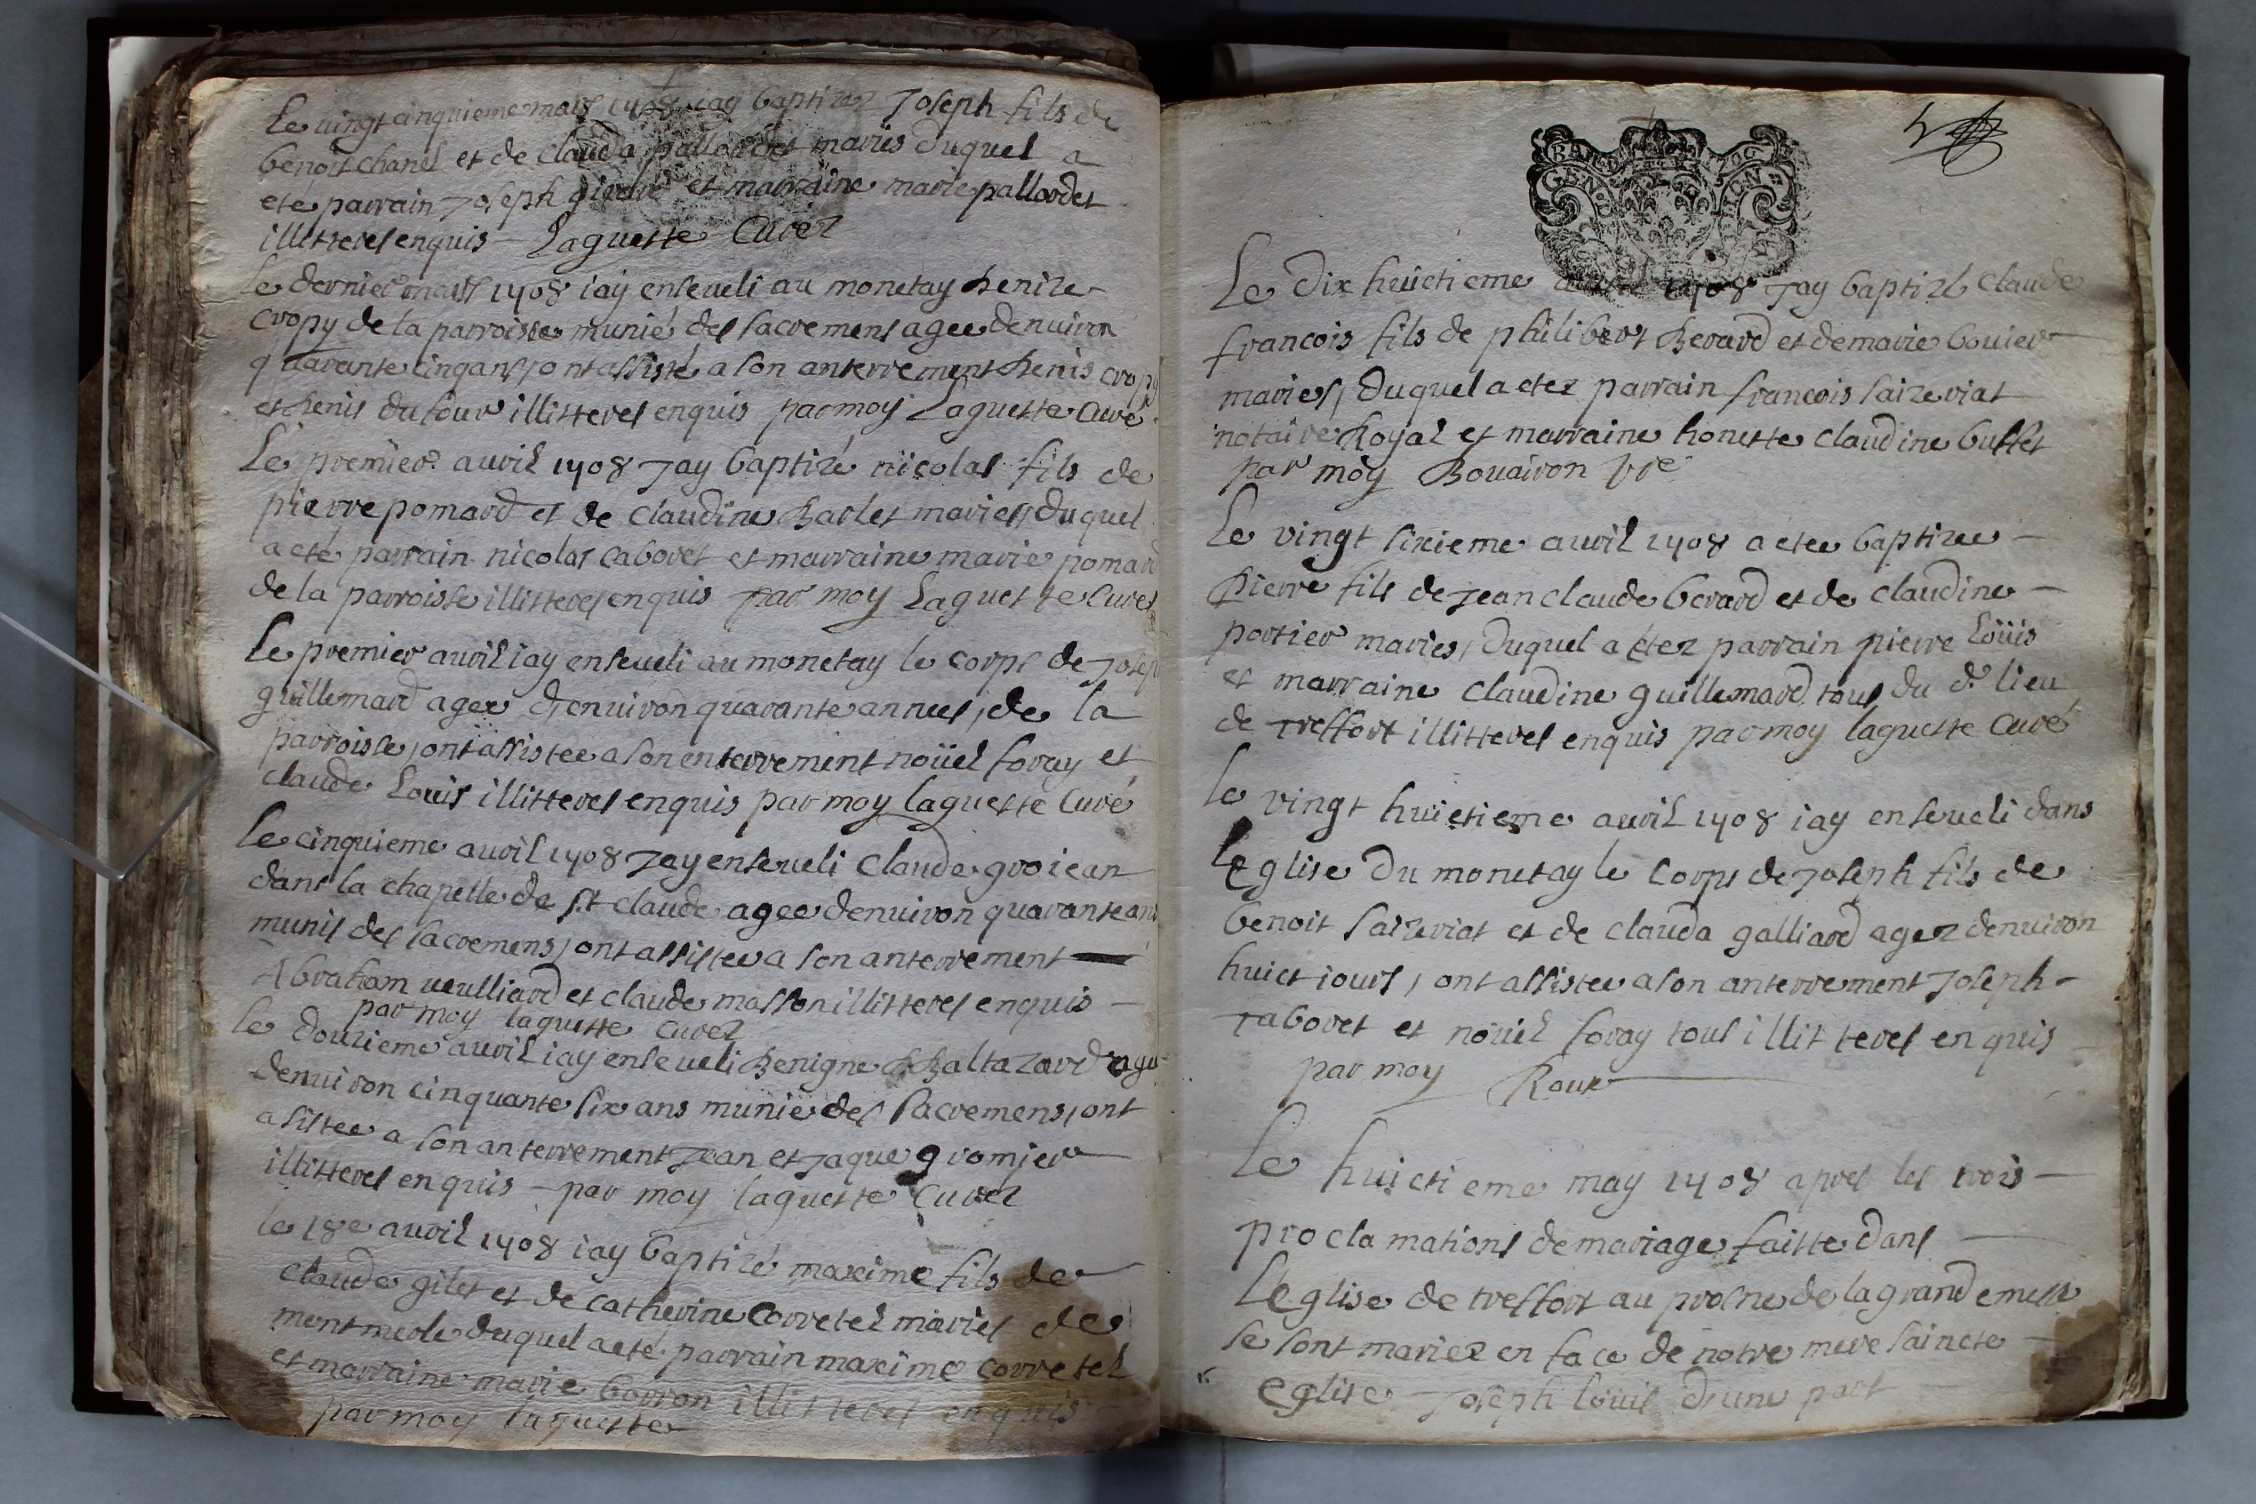 Le vingt cinquieme mars 1708 iay baptizez Joseph fils de
benoit chanel et de clauda pallordet mariés duquel a
eté parrain Joseph girard et marraine marie pallordet
illitteres enquis - Laguette Curéz
le dernier mars 1708 iay enseueli au monetay Denize
Cropy de la parroisse munié des sacremens agee denuiron
quarante cinq ans, ont assisté a son anterrement Denis cropy
et Denis dufour illitteres enquis par moy Laguette Curé
Le premier auril 1708 Jay baptizé nicolas fils de
pierre pomard et de claudine Barlet maries, duquel
a eté parrain nicolas caboret et marraine marie pomard
de la parroisse illitteres enquis par moy Laguette Curez
Le premier auril iay enseueli au monetay le corps de Joseph
guillemard agee denuiron quarante annees, de la
parroisse, ont assistee a son enterrement noüel foray et
claude Louis illitteres enquis par moy laguette Curé
Le cinquieme auril 1708 Jay enseueli Claude groiean
dans la chapelle de st claude agee denuiron quarante ans
munis des sacremens, ont assistee a son anterrement
Abraham ueulliard et claude masson illitteres enquis -
par moy laguette curez
le douzieme auril iay enseueli Benigne Baltazard agee
denuiron cinquante six ans munie des sacremens, ont
asistee a son anterrement Jean et Jaque gromier
illitteres enquis - par moy laguette Curéz
le 18e auril 1708 iay baptizé maxime fils de
claude gilet et de catherine Corretel mariés de
mentmerle duquel a eté parrain maxime corretel
et marraine marie borron illitteres enquis
par moy laguette
GEN D LION
Le Dix huictieme auril 1708 Jay baptizé claude
francois fils de philibert Berard et de marie bouier
maries, duquel a etez parrain francois saizeriat
notaire Royal et marraine honette claudine buffet
par moy Bouairon vre
Le vingt sixieme auril 1708 a etee baptizee -
pierre fils de Jean claude berard et de claudine -
portier maries, duquel a étez parrain pierre Loüis
et marraine claudine guillemard tous du d. lieu
de treffort illitteres enquis par moy laguette curé
le vingt huietieme auril 1708 iay enseueli dans
leglise du monetay le corps de Joseph fils de
benoit saizeriat et de clauda galliard agez denuiron
huict iours, ont assistee a son anterrement Joseph -
Taboret et noüel foray tous illitteres enquis
par moy Roux
Le huictieme may 1708 apres les trois -
proclamations de mariage faitte dans
Leglise de treffort au prosne de la grande messe
se sont mariez en face de notre mere saincte
eglise Joseph louis dune part